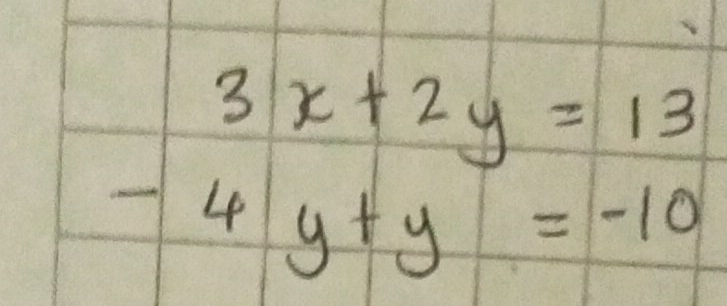 3x+2y = 13
-4y+y = -10